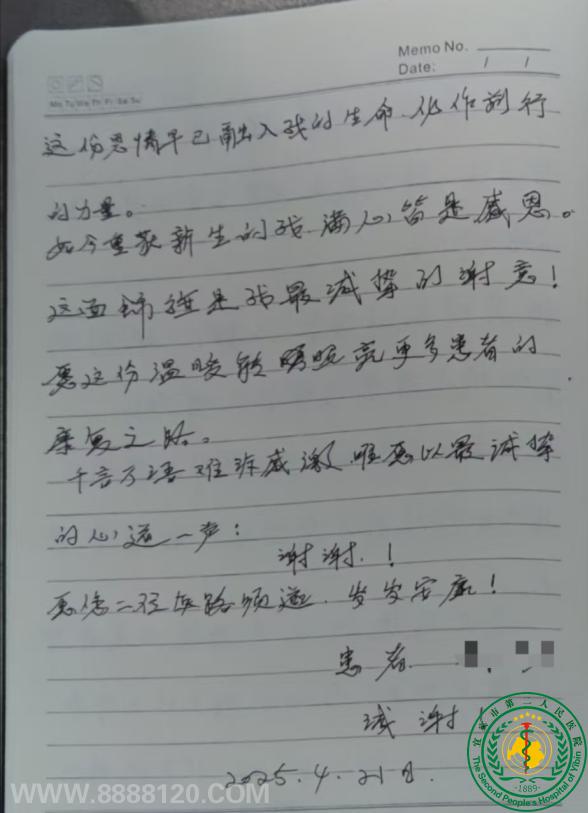 Memo No.
Date: / /
Mo Tu We Th Fr Sa Su
这份恩情早已融入我的生命,化作前行
的力量。
如今重获新生的我,满心皆是感恩。
这面锦旗是我最诚挚的谢意!
愿这份温暖能照亮更多患者的
康复之路。
千言万语难诉感激,唯愿以最诚挚
的心道一声:
谢谢!
愿您一径医路顺遂,岁岁安康!
患者
诚谢
2025.4.21日.
宜宾市第二人民医院
The Second People's Hospital of Yibin
-1889-
WWW.8888120.COM